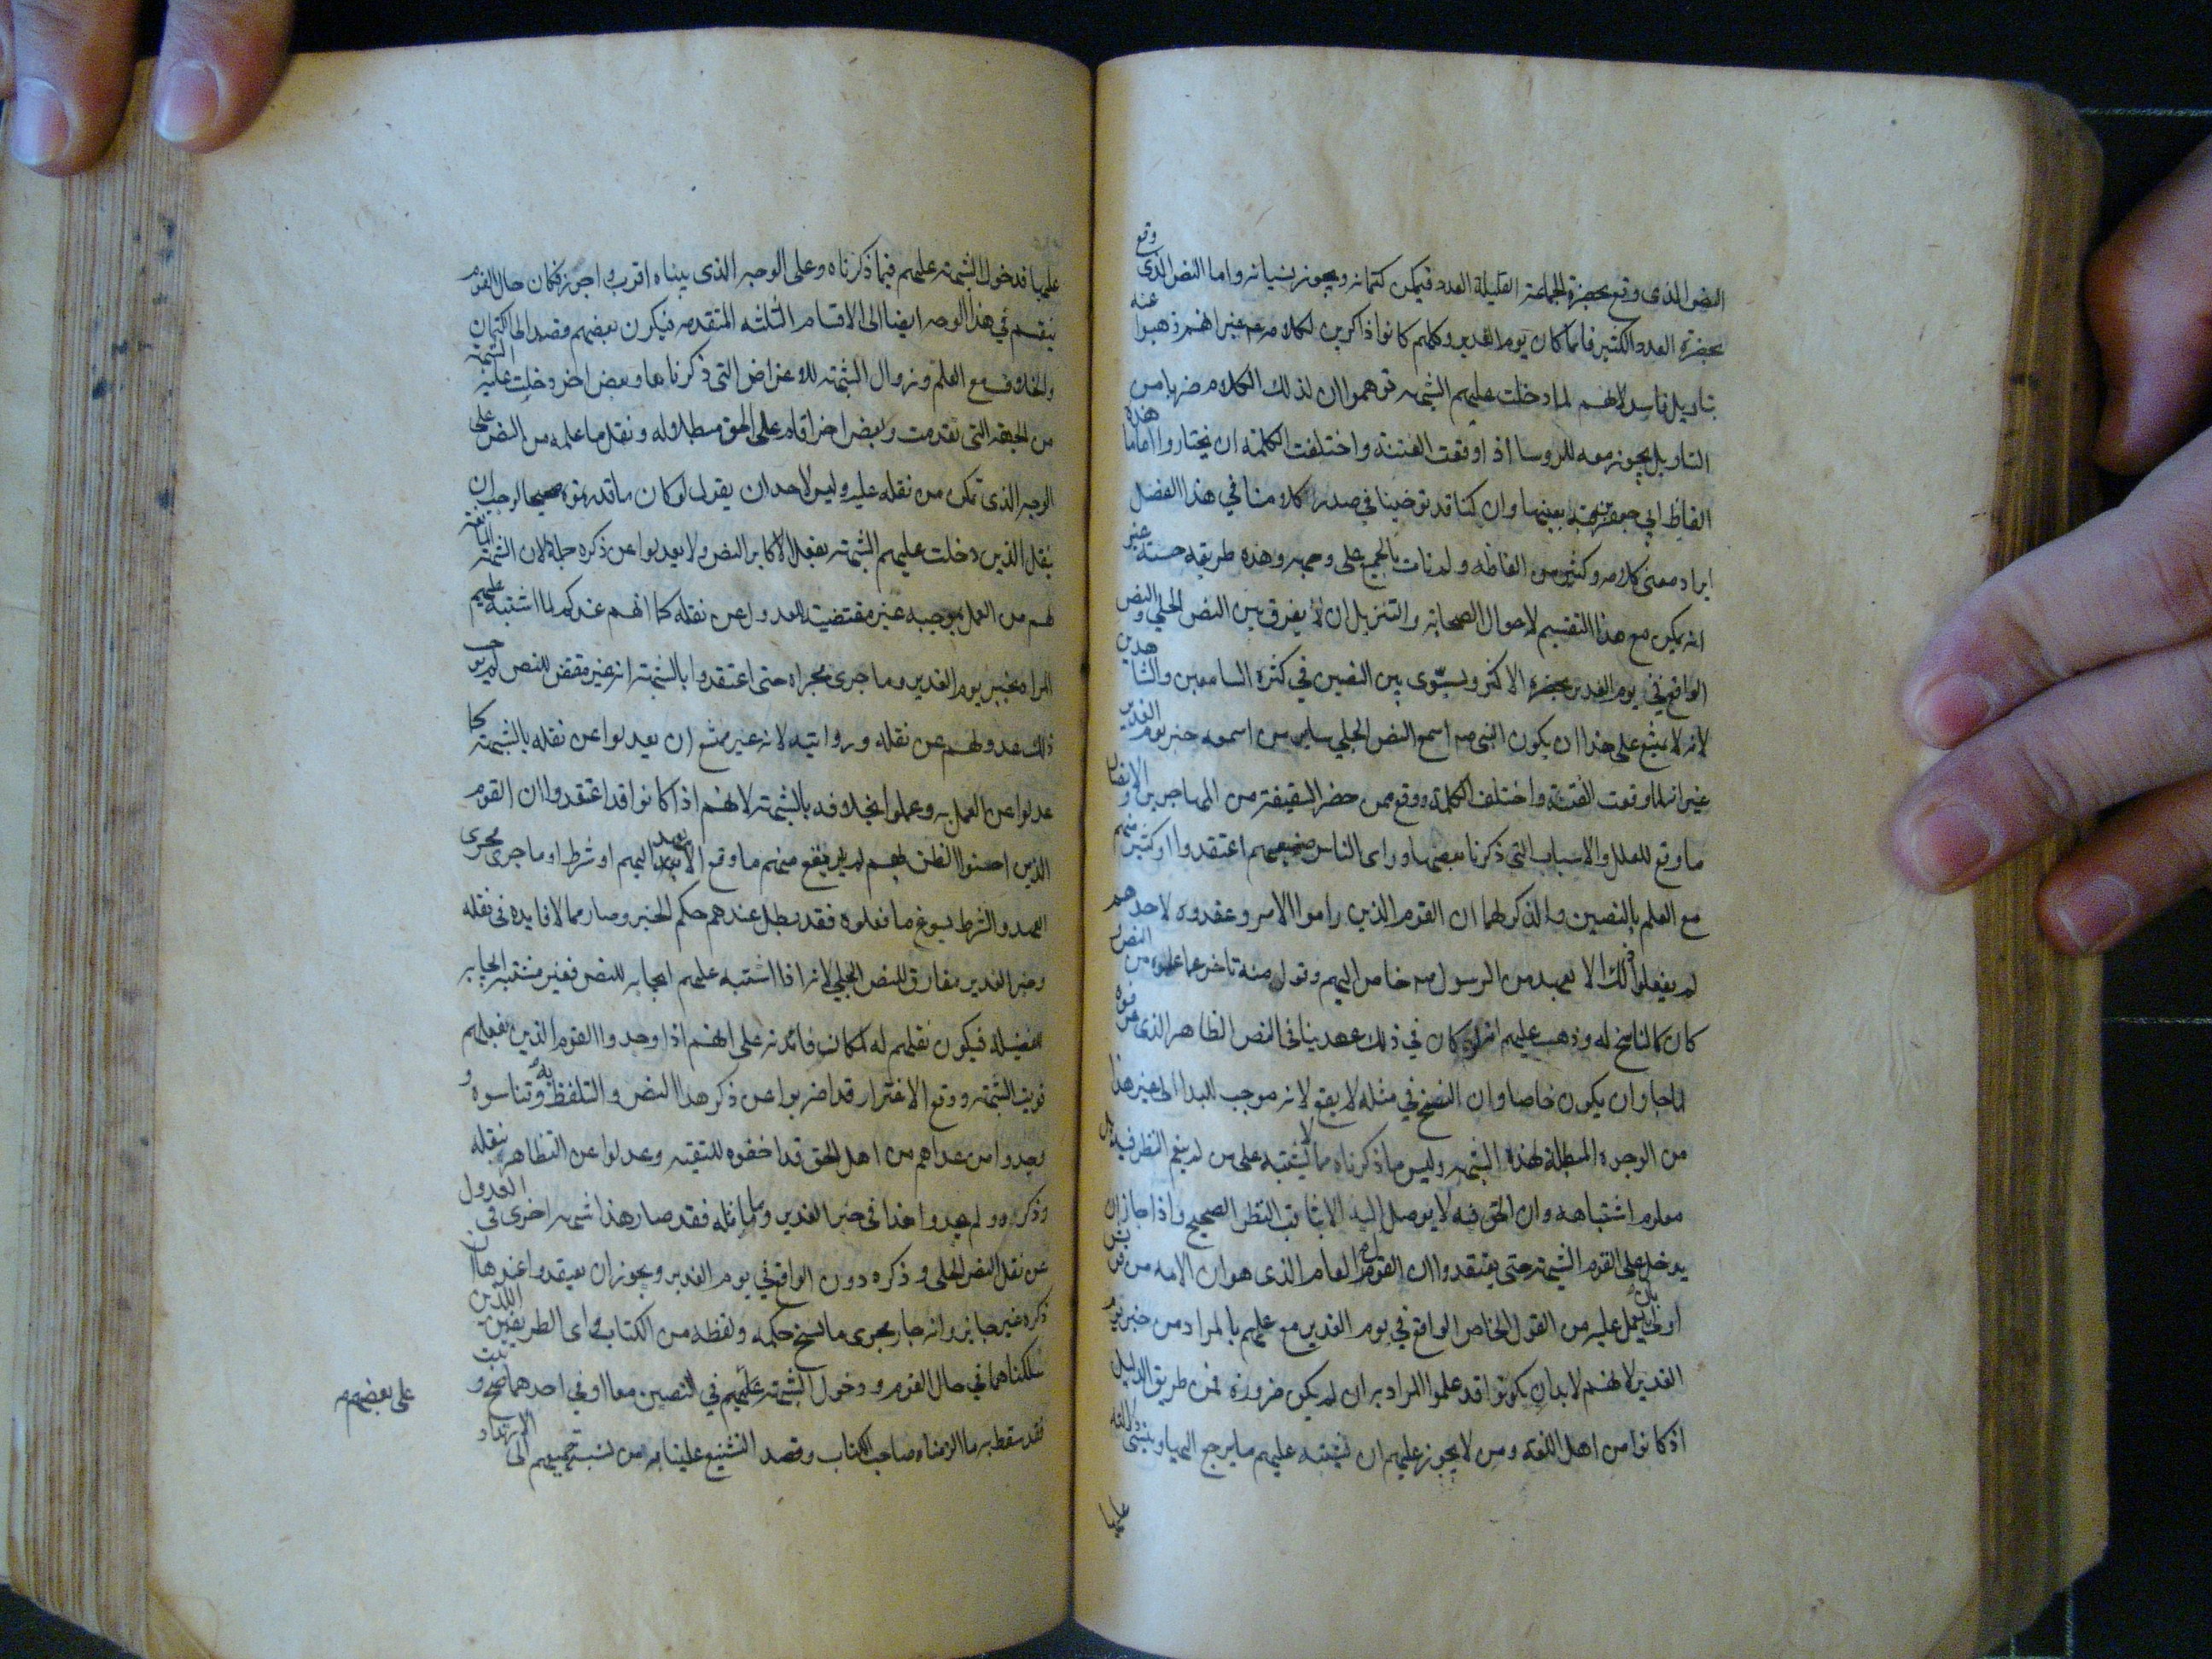 النص الذى وقع بحضرة الجماعة القليلة العدد فيمكن كتمانه ويجوز نسيانه واما النص الذى وقع
بحضرة العدد الكثير فانما كان يوم الغدير وكلهم كانوا ذاكرين لكلامه غير انهم ذهبوا عنه
بتاويل فاسد لانهم لما دخلت عليهم الشبهه توهموا ان لذلك الكلام ضربا من
التاويل يجوز معه للروسا اذا وقعت الفتنة واختلفت الكلمة ان يختاروا اماما هذه
الفاظ ابى جعفر بعينها وان كنا قد توخينا فى صدر كلامنا فى هذا الفصل
ايراد معنى كلامه وكثير من الفاظه ولم نات بالجميع على وجهه وهذه طريقه حسنة غير
انه يمكن مع هذا التقسيم لاحوال الصحابة والتنزيل ان لا يفرق بين النص الجلي والنص
الواقع فى يوم الغدير بحضرة الاكثر ويسوّى بين النصين فى كثرة السامعين والشاهدين
لانه لا يمتنع على هذا ان يكون النبى صم اسمع النص الجلي ساير من اسمعه خبر يوم الغدير
غير انه لما وقعت الفتنة واختلف الكلمة ووقع ممن حضر السقيفة من المهاجرين والانصار
ما وقع للعلل والاسباب التى ذكرنا بعضها وراى الناس صنيعهم اعتقدوا او كثير منهم
مع العلم بالنصين والذكر لهما ان القوم الذين راموا الامر وعقدوه لاحدهم
لم يفعلوا ذلك الا بعهد من الرسول صم خاص اليهم وقول منه تاخر عما علموه من النص
كان كالناسخ له وذهب عليهم انه لو كان فى ذلك عهد ينافى النص الظاهر الذى عرفوه
لما جاز ان يكون خاصا وان النسخ فى مثله لا يقع لانه موجب للبدا الى غير هذا
من الوجوه المبطلة لهذه الشبهه وليس ما ذكرناه مما لا يشتبه على من لم ينعم النظر فيه بل
معلوم اشتباهه وان الحق فيه لا يوصل اليه الا بثاقب النظر الصحيح واذا جاز ان
يدخل على القوم الشبهة حتى يعتقدوا ان القول العام الذى هو ان الائمه من قريش
اولى بان يعمل عليه من القول الخاص الواقع فى يوم الغدير مع علمهم بالمراد من خبر يوم
الغدير لانهم لا بد ان يكونوا قد علموا المراد به ان لم يكن ضرورة فمن طريق الدليل
اذ كانوا من اهل اللغه ومن لا يجوز عليهم ان يشتبه عليهم ما يرجع اليها ويبتنى دلالته
عليها
عليها فدخول الشبهة عليهم فيما ذكرناه وعلى الوجه الذى بيناه اقرب واجوز فكان حال القوم
ينقسم فى هذا الوجه ايضا الى الاقسام الثلثه المتقدمه فيكون بعضهم قصد الى الكتمان
والخلاف مع العلم وزوال الشبهة للاعراض التى ذكرناها وبعض اخر دخلت عليه الشبهة
من الجهة التى تقدمت وبعض اخر اقام على الحق متمسكا له ونقل ما علمه من النص على
الوجه الذى تمكن من نقله عليه وليس لاحد ان يقول لو كان ما قدرتموه صحيحا لوجب ان
ينقل الذين دخلت عليهم الشبهة بفعل الاكابر النص ولا يعدلوا عن ذكره جملة لان الشبهة المانعة
لهم من العمل بموجبه غير مقتضية للعدول عن نقله كما انهم عندكم لما اشتبه عليهم
المراد بخبر يوم الغدير وما جرى مجراه حتى اعتقدوا بالشبهة انه غير مقتض للنص لم يوجب
ذلك عدولهم عن نقله وروايته لانه غير ممتنع ان يعدلوا عن نقله بالشبهة كما
عدلوا عن العمل به وعملوا بخلافه بالشبهة لانهم اذا كانوا قد اعتقدوا ان القوم
الذين احسنوا الظن بهم لم يقع منهم ما وقع الا بعهد اليهم او شرط او ما جرى مجرى
العهد والشرط يسوغ ما فعلوه فقد بطل عندهم حكم الخبر وصار مما لا فايده فى نقله
وخبر الغدير مفارق للنص الجلي لانه اذا اشتبه عليهم ايجابه للنص فغير مشتبه ايجابه
لفضيلة فيكون نقلهم له لمكان فائدته على انهم اذا وجدوا القوم الذين بفعلهم
قويت الشبهة ووقع الاغترار قد اضربوا عن ذكر هذا النص والتلفظ به وتناسوه و
وجدوا من عداهم من اهل الحق قد اخفوه للتقية وعدلوا عن التظاهر بنقله
وذكره ولم يجدوا هذا فى خبر الغدير وما ماثله فقد صار هذا شبهه اخرى فى العدول
عن نقل النص الجلي وذكره دون الواقع فى يوم الغدير ويجوز ان يعتقدوا عندها ان
ذكره غير جايز وانه جار مجرى ما نسخ حكمه ولفظه من الكتاب فاى الطريقين اللذين
سلكناهما فى حال القوم ودخول الشبهة عليهم فى النصين معا او فى احدهما صح وثبت
فقد سقط به ما الزمناه صاحب الكتاب وقصد التشنيع علينا به من نسبة جميعهم الى الارتداد
على بعضهم